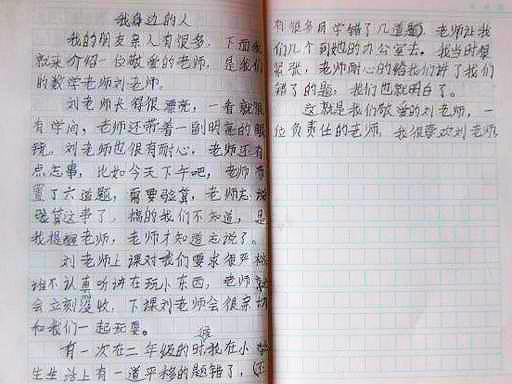 我身边的人
我的朋友亲人有很多,下面我
就来介绍一位敬爱的老师,是我们
的数学老师刘老师。
刘老师长得很漂亮,一看就很
有学问,老师还带着一副明亮的眼
镜。刘老师也很有耐心,老师还有
点忘事,比如今天下午吧,老师布
置了六道题,需要验算,老师忘说
验算这事了,搞的我们不知道,是
我提醒老师,老师才知道忘说了。
刘老师上课对我们要求很严格
谁不认真听讲在玩小东西,老师就
会立刻没收,下课刘老师会很亲切
和我们一起玩耍。
有一次在二年级的时候我在小学
生生活上有一道平移的题错了,还
有很多同学错了几道题,老师让我
们几个同她的办公室去。我当时很
紧张,老师耐心的给我们讲了我们
错了的题,我们也就明白了。
这就是我们敬爱的刘老师,一
位负责任的老师,我很喜欢刘老师